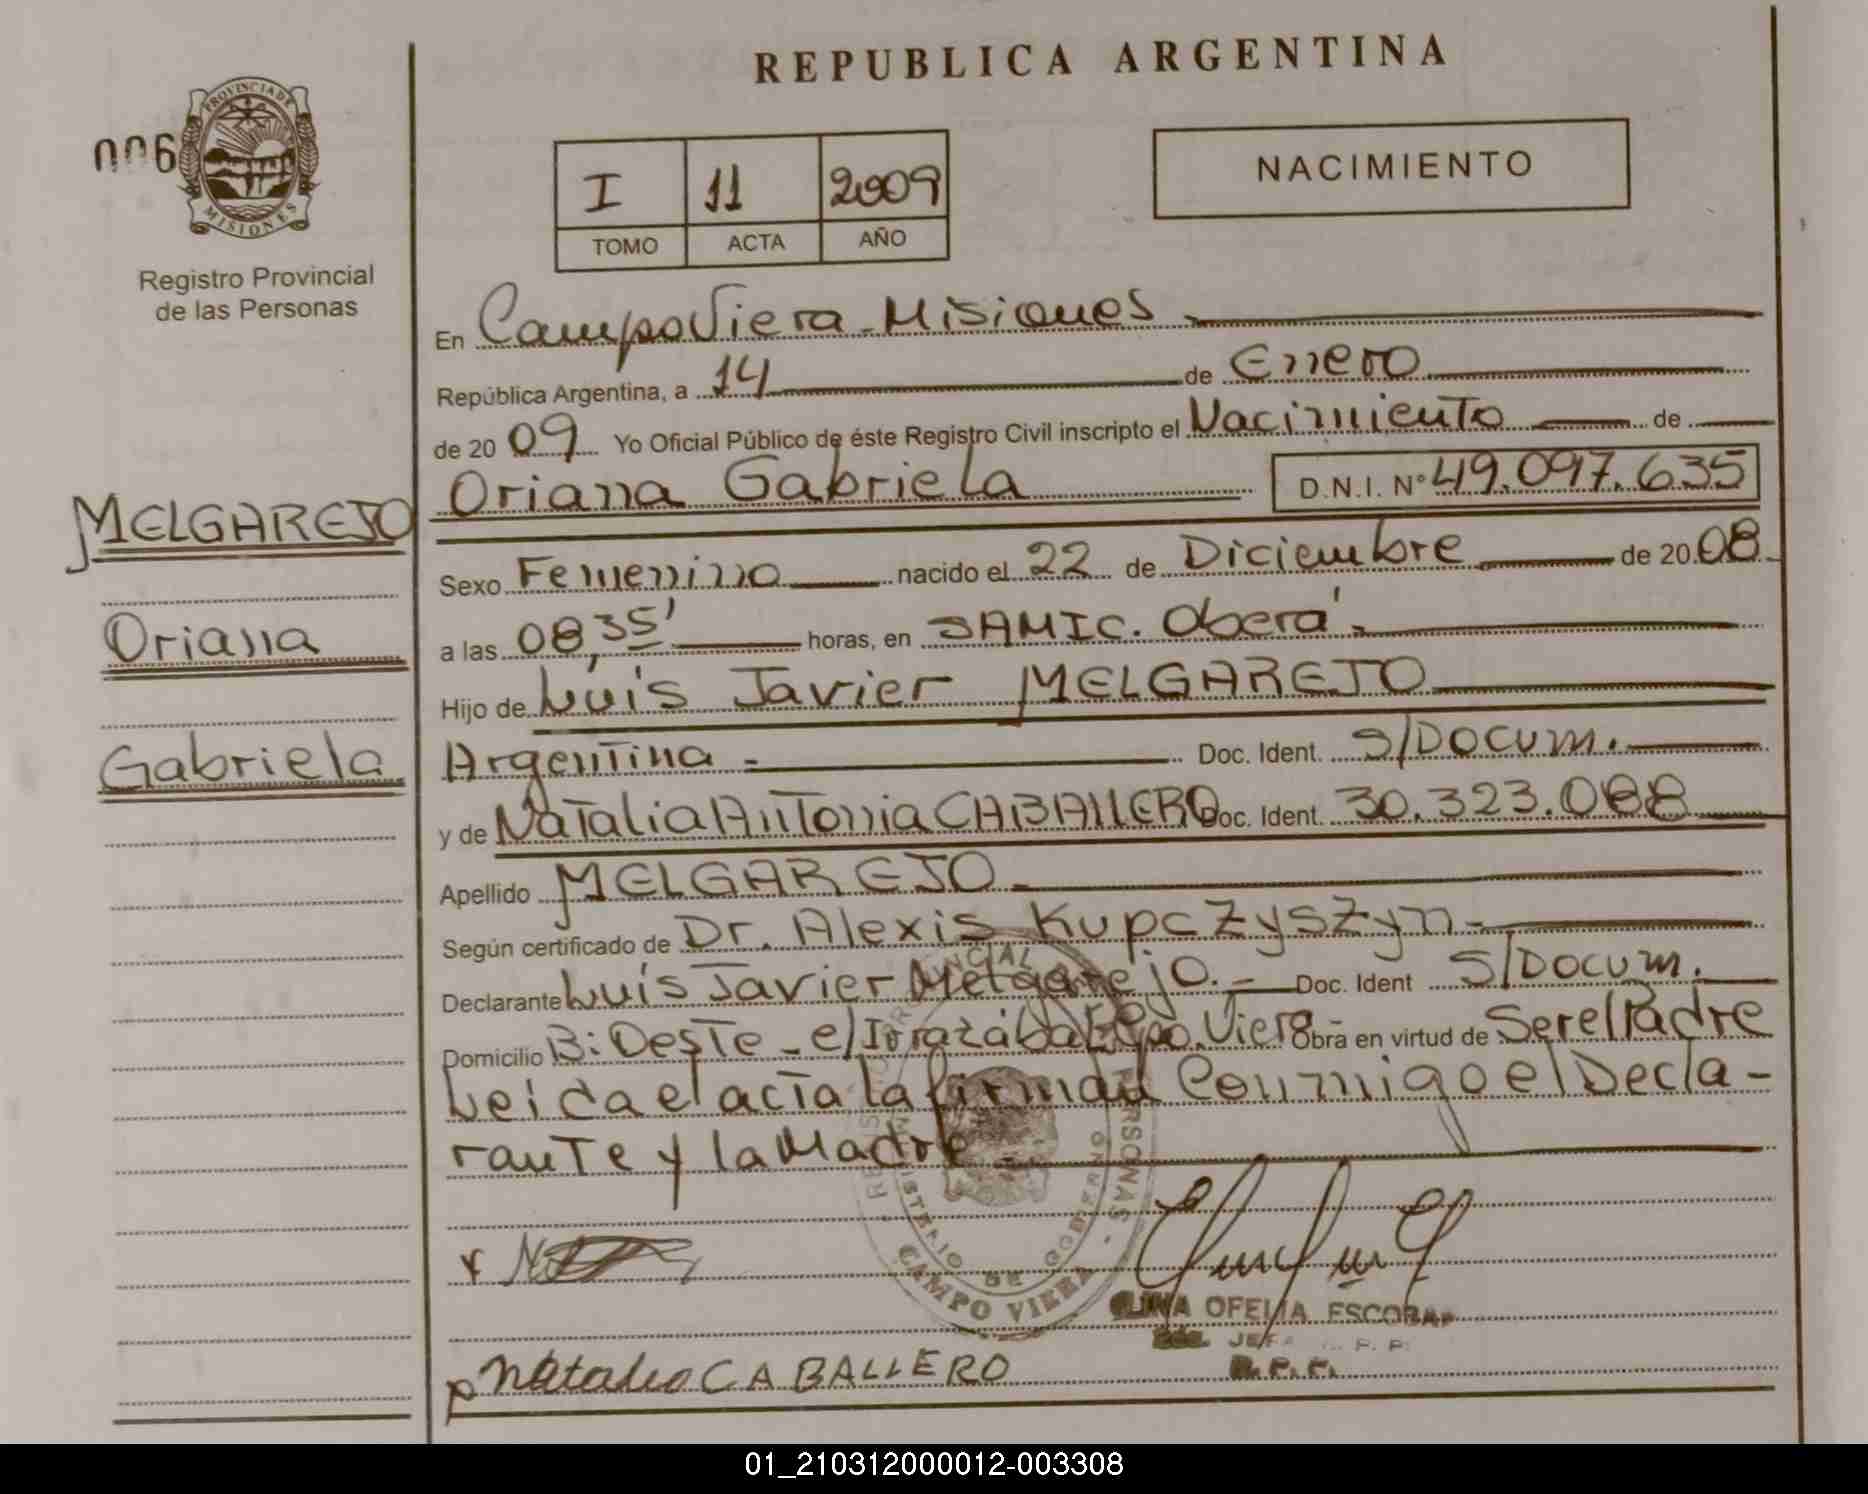 REPUBLICA ARGENTINA
006
PROVINCIA DE MISIONES
Registro Provincial
de las Personas
I 11 2009
TOMO ACTA AÑO
NACIMIENTO
En Campo Viera - Misiones -
República Argentina, a 14 de Enero
de 2009 Yo Oficial Público de éste Registro Civil inscripto el Nacimiento de
Oriana Gabriela D.N.I. Nº 49.097.635
MELGAREJO
Oriana
Gabriela
Sexo Femenino nacido el 22 de Diciembre de 2008
a las 08,35' horas, en SAMIC. Oberá -
Hijo de Luis Javier MELGAREJO
Argentina - Doc. Ident. S/DOCUM.
y de Natalia Antonia CABALLERO Doc. Ident. 30.323.088
Apellido MELGAREJO -
Según certificado de Dr. Alexis Kupczyszyn -
Declarante Luis Javier Melgarejo. - Doc. Ident S/DOCUM.
Domicilio B: Oeste - e/ Irrazábal Cpo. Viera Obra en virtud de Ser el Padre
Leida el acta la firman Conmigo el Decla-
rante y la Madre -
CAMPO VIERA
MINISTERIO DE GOBIERNO
OFELIA ESCOBAR
JEFA
R.P.P.
Natalia CABALLERO
01_210312000012-003308